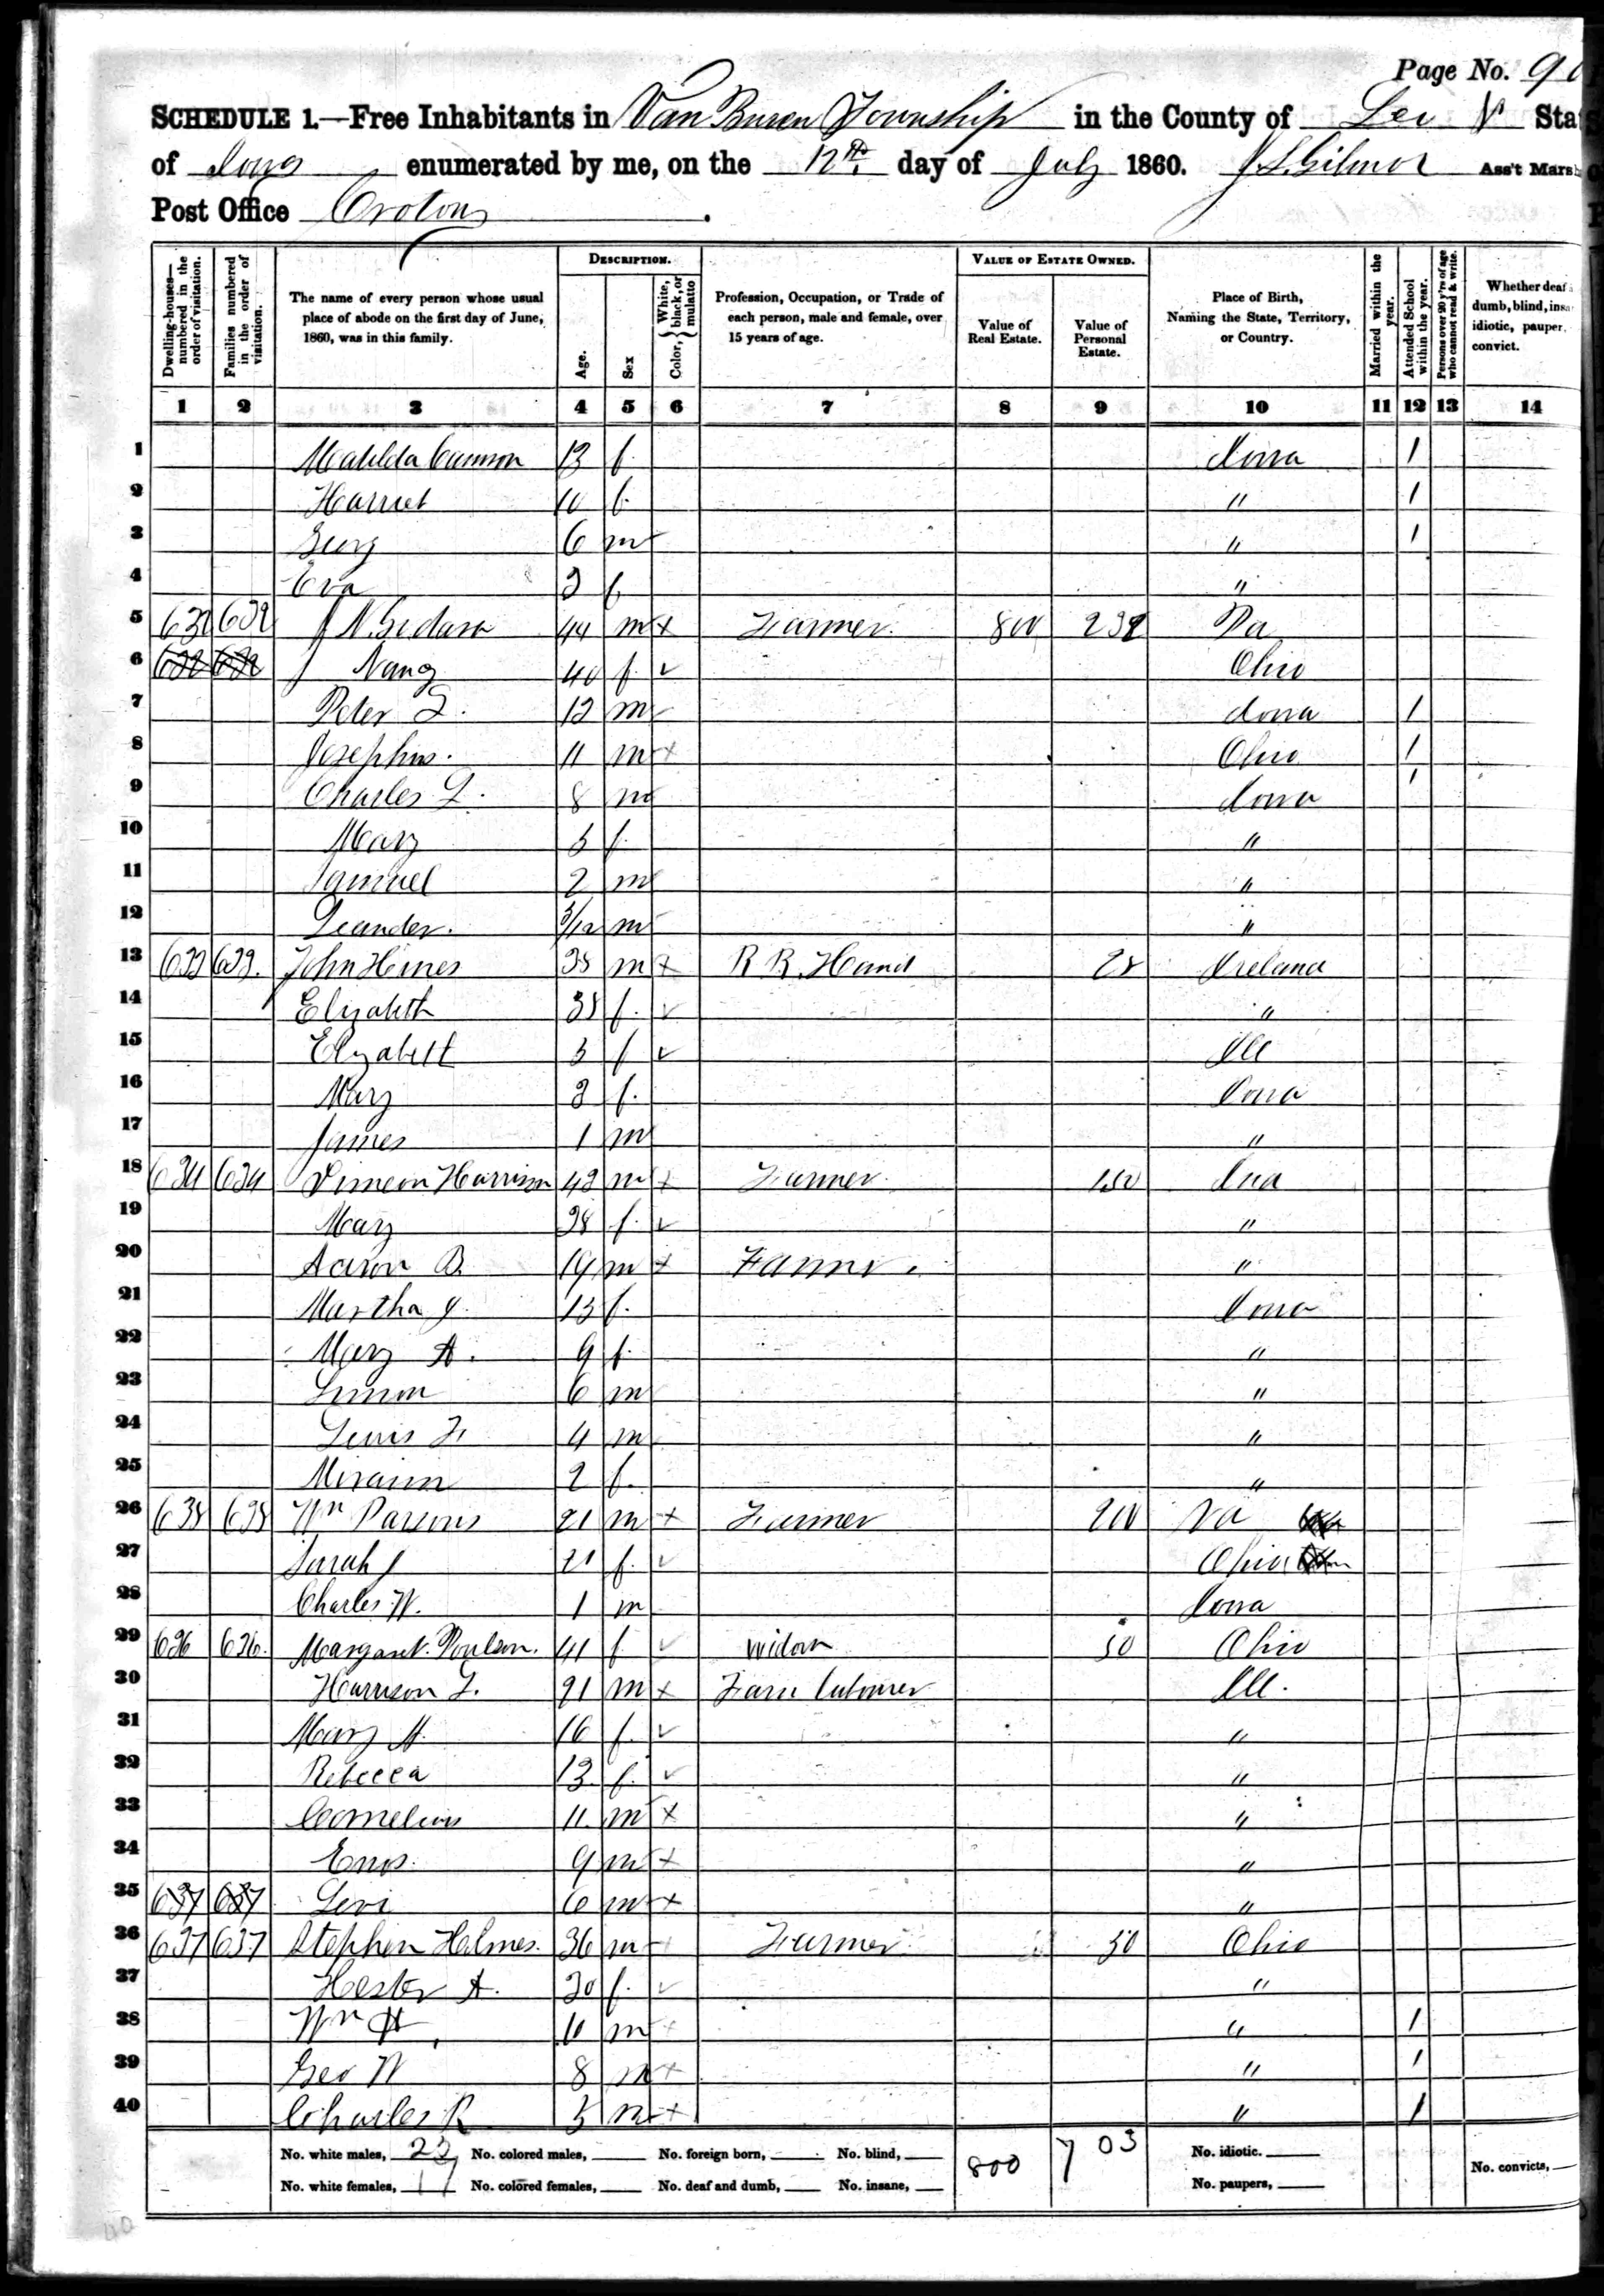 Page No. 90
SCHEDULE 1.—Free Inhabitants in Van Buren Township in the County of Lee Sta
of Iowa enumerated by me, on the 12th. day of July 1860. J. S. Gilmor Ass't Mars
Post Office Croton
Dwelling-houses—numbered in the order of visitation.
Families numbered in the order of visitation.
The name of every person whose usual place of abode on the first day of June, 1860, was in this family.
DESCRIPTION.
Age.
Sex
Color, { White, black, or mulatto
Profession, Occupation, or Trade of each person, male and female, over 15 years of age.
VALUE OF ESTATE OWNED.
Value of Real Estate.
Value of Personal Estate.
Place of Birth, Naming the State, Territory, or Country.
Married within the year.
Attended School within the year.
Persons over 20 y'rs of age who cannot read & write.
Whether deaf dumb, blind, insa idiotic, pauper, convict.
1 2 3 4 5 6 7 8 9 10 11 12 13 14
1 Matilda Cannon 13 f. Iowa 1
2 Harriet 10 f. " 1
3 Georg 6 m " 1
4 Eva f "
5 632 632 J N. 44 m x Farmer. 800 Pa
6 632 632 Nancy 40 f. ✓ Ohio
7 Peter L. 12 m Iowa 1
8 Josephus. 11 m x Ohio 1
9 Charles L. 8 m Iowa 1
10 Mary f. "
11 Samuel 2 m "
12 Leander. /12 m "
13 633 633. John Hines 35 m x R R. Hand 25 Ireland
14 Elizabeth 35 f. ✓ "
15 Elizabeth 5 f ✓ Ill
16 Mary 3 f. Iowa
17 James 1 m "
18 634 634 Simeon Harrison 43 m x Farmer. 150 Ina
19 Mary 38 f. ✓ "
20 Aaron B. 19 m x Farmer. "
21 Martha J. 13 f. Iowa
22 Mary A. 9 f. "
23 6 m "
24 Lewis F. 4 m "
25 2 f. "
26 635 635 Wm Parsons 21 m x Farmer 200 Va
27 Sarah J 21 f. ✓ Ohio
28 Charles W. 1 m Iowa
29 636 636. Margaret. Poulson. 41 f ✓ widow 50 Ohio
30 Harrison L. 21 m x Farm laborer Ill.
31 Mary A. 16 f. ✓ "
32 Rebecca 13. f. ✓ "
33 Cornelius 11. m x "
34 Enos. 9 m x "
35 637 637 Levi 6 m x "
36 637 637 Stephen Holmes. 36 m Farmer. 50 Ohio
37 Hester A. 30 f. ✓ "
38 Wm H 11 m x " 1
39 Geo W 8 m x " 1
40 Charles R 5 m x " 1
No. white males, 23 No. colored males, No. foreign born, No. blind, 800 703 No. idiotic.
No. white females, 17 No. colored females, No. deaf and dumb, No. insane, No. paupers, No. convicts,
40